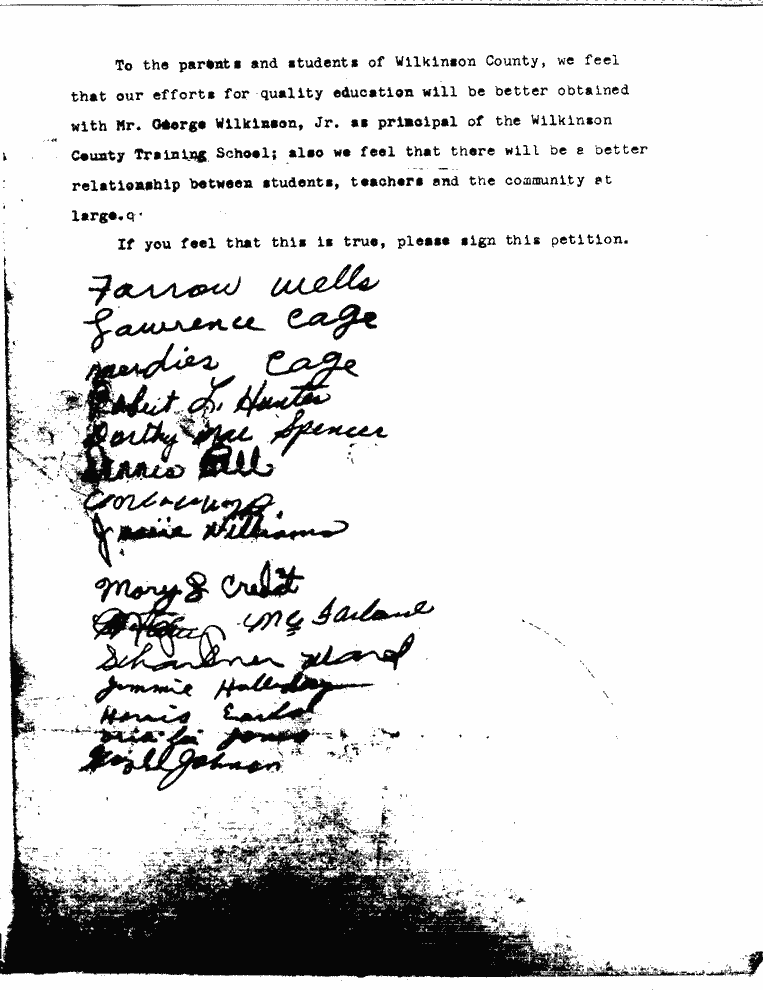 To the parents and students of Wilkinson County, we feel
that our efforts for quality education will be better obtained
with Mr. George Wilkinson, Jr. as principal of the Wilkinson
County Training School; also we feel that there will be a better
relationship between students, teachers and the community at
large.q.
If you feel that this is true, please sign this petition.
Farrow Wells
Lawrence Cage
Cage
Robert L. Hunter
Dorthy Mae Spencer
Williams
Mary J Credit
McFarlane
Ward
Jimmie Holliday
Jones
Johnson